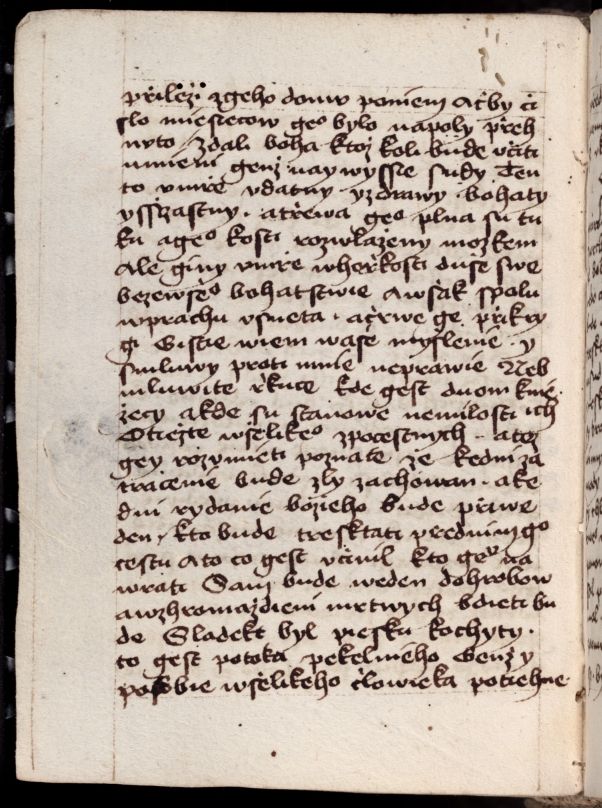 přileži zgeho domu poniem Ačby či
slo miesiecow geo bylo napoly přeh
nuto zdali boha ktož koli bude včiti
vmieni genž naywyssie sudy Ten
to vmře vdatny yzdrawy bohaty
ysscastny . ačřewa geo plna su tu
ku ageo kosti rozwlaženy mozkem
Ale giny vmře whořkosti duše swe
bezewšeo bohatstwie Awšak spolu
wprachu vsneta . ačrwe ge přikry
gi Gistie wiem waše myšlenie . y
smluwy proti mnie neprawie Neb
mluwite řkuce kde gest duom knie
žecy akde su stanowe nemilosti ich
Otiežte wšelikeo zpocestnych . atož
gey rozymieti poznate že kedni za
tracenie bude zly zachowan . ake
dni rydanie božieho bude přiwe
den , kto bude tresktati přednim go
cestu Ato co gest včinil kto geu na
wrati Sam bude weden dohrobow
awzhromaždieni mrtwych bdieti bu
de Sladekt byl piesku kochyty .
to gest potoka pekelnieho Genž y
posobie wšelikeho člowieka potiehne